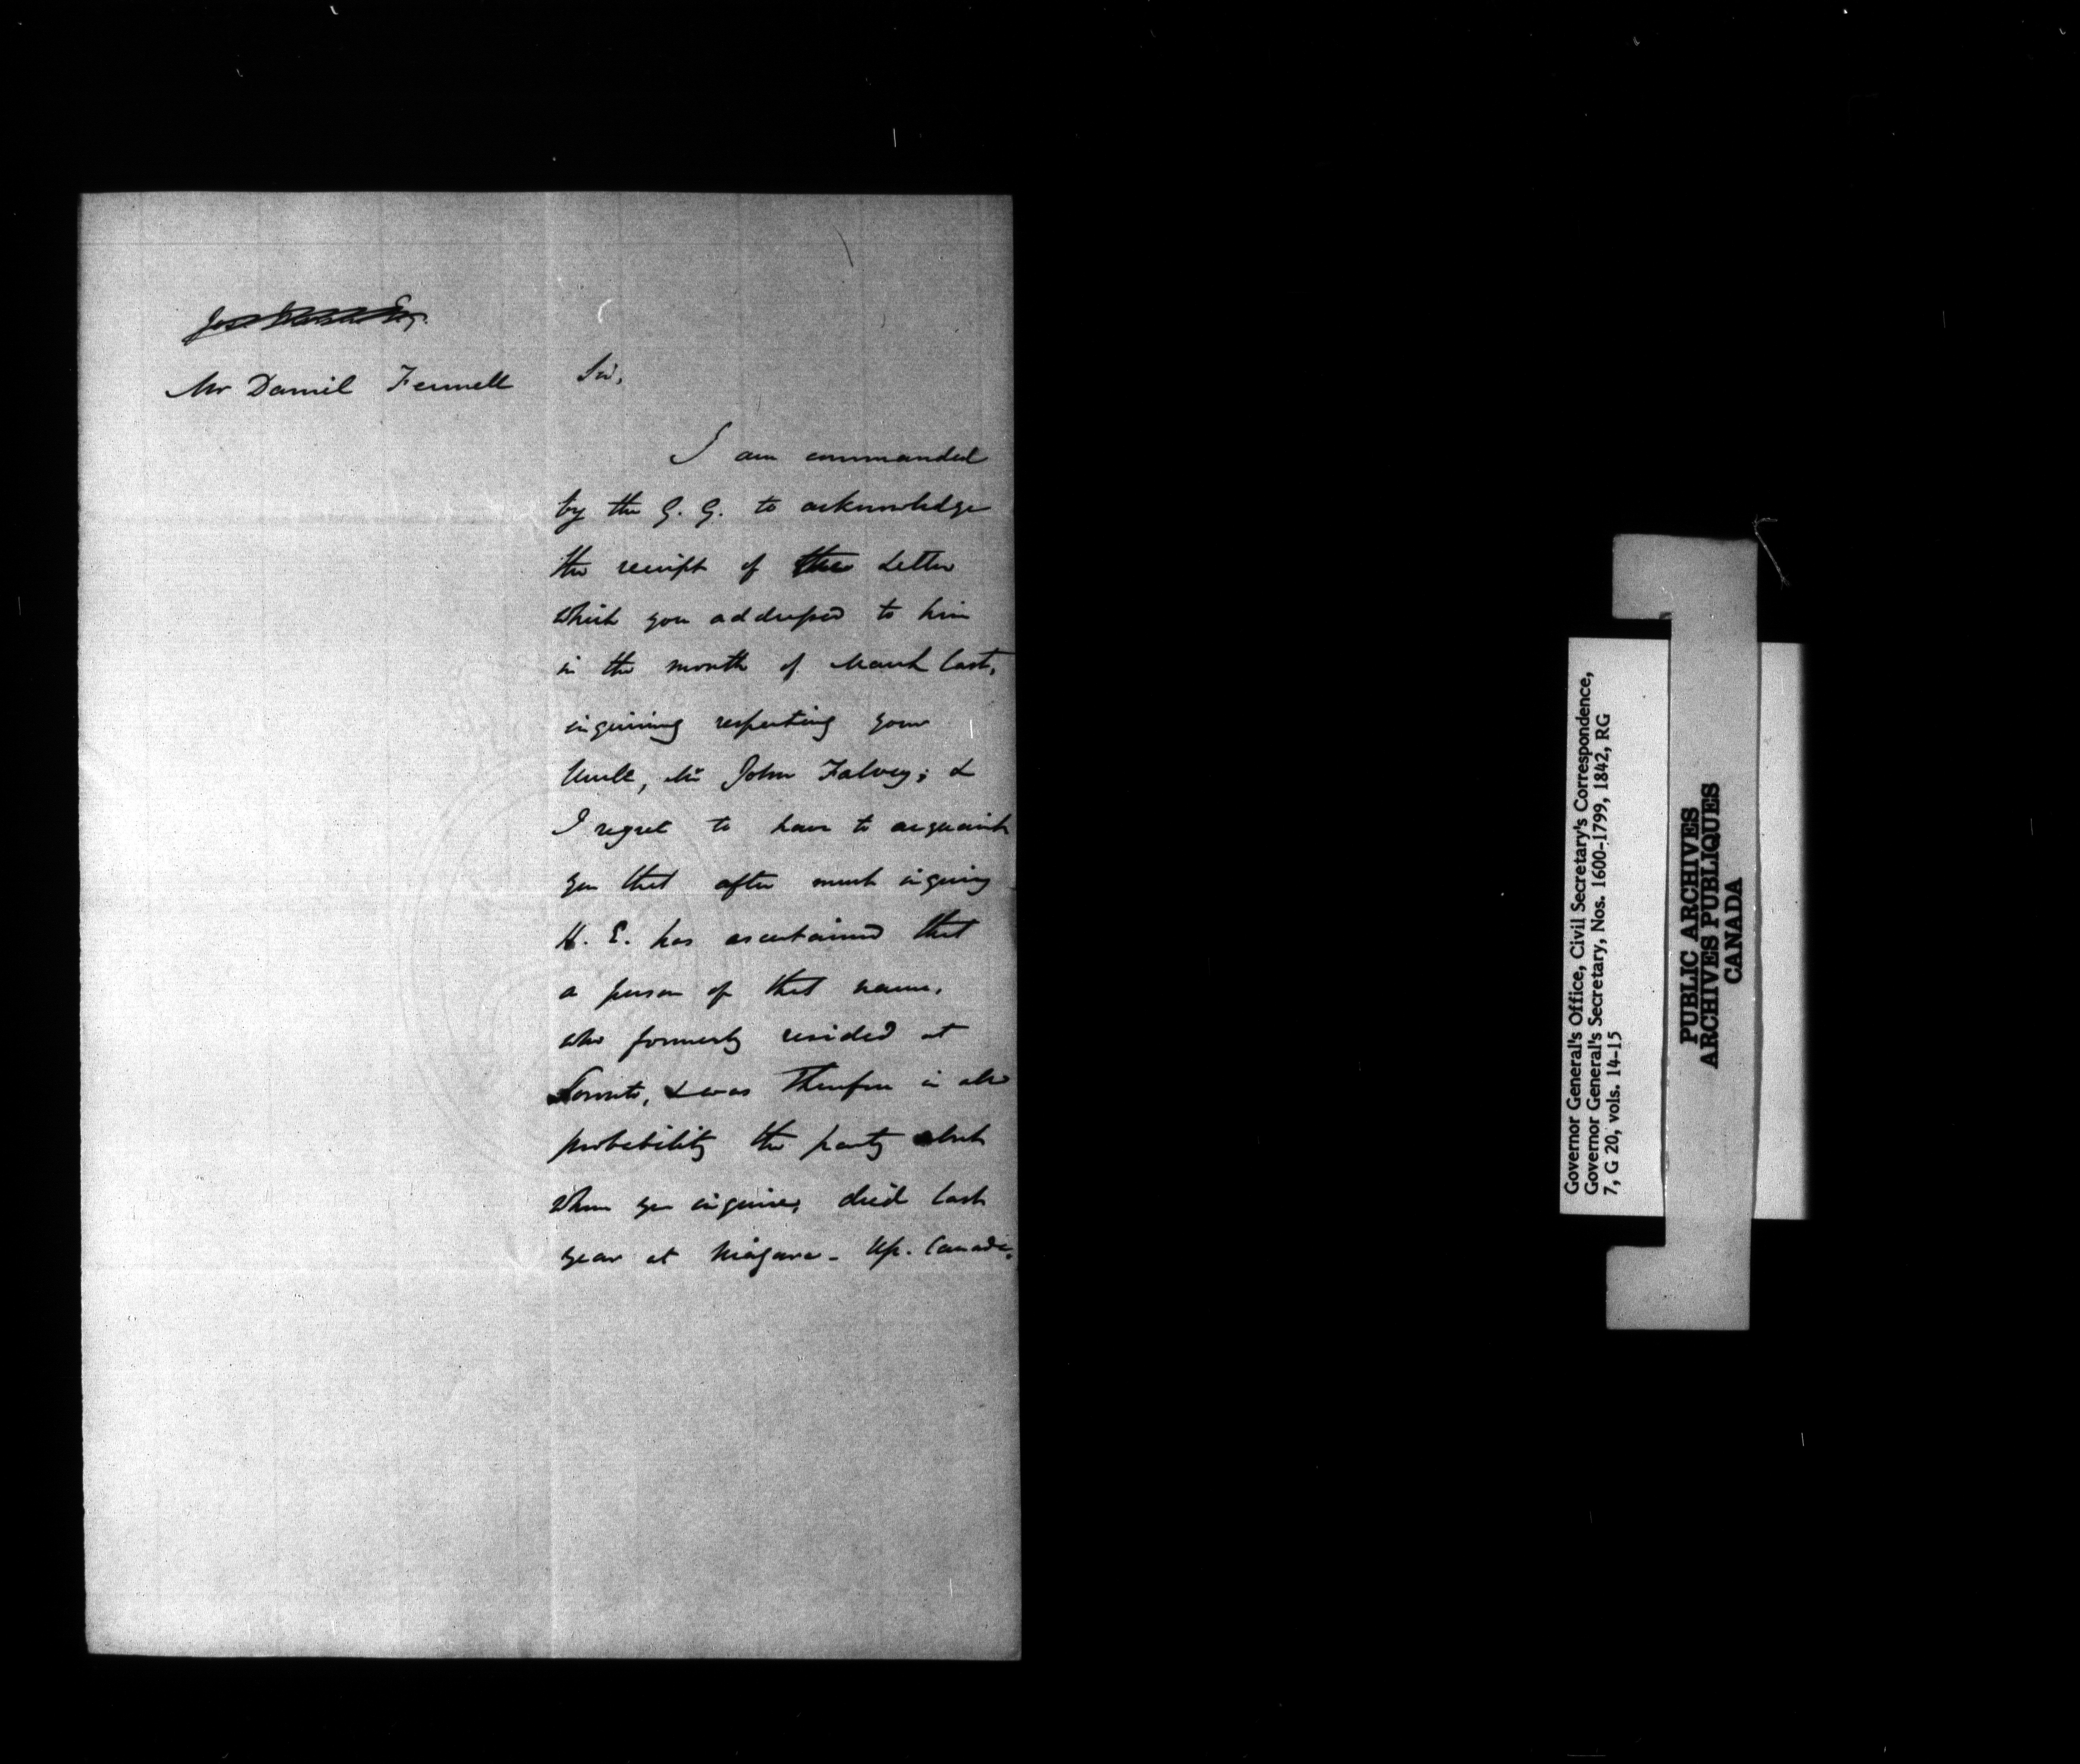 Mr Daniel Fennell
Sir,
I am commanded
by the G. G. to acknowledge
the receipt of the Letter
which you addressed to him
in the month of March last,
inquiring respecting your
Uncle, Mr John Falvey; &
I regret to have to acquaint
you that after much inquiry
H. E. has ascertained that
a person of that name,
who formerly resided at
Toronto, & was therefore in all
probability the party abt
whom you inquire, died last
year at Niagara - Up. Canada.
Governor General's Office, Civil Secretary's Correspondence,
Governor General's Secretary, Nos. 1600-1799, 1842, RG
7, G 20, vols. 14-15
PUBLIC ARCHIVES
ARCHIVES PUBLIQUES
CANADA